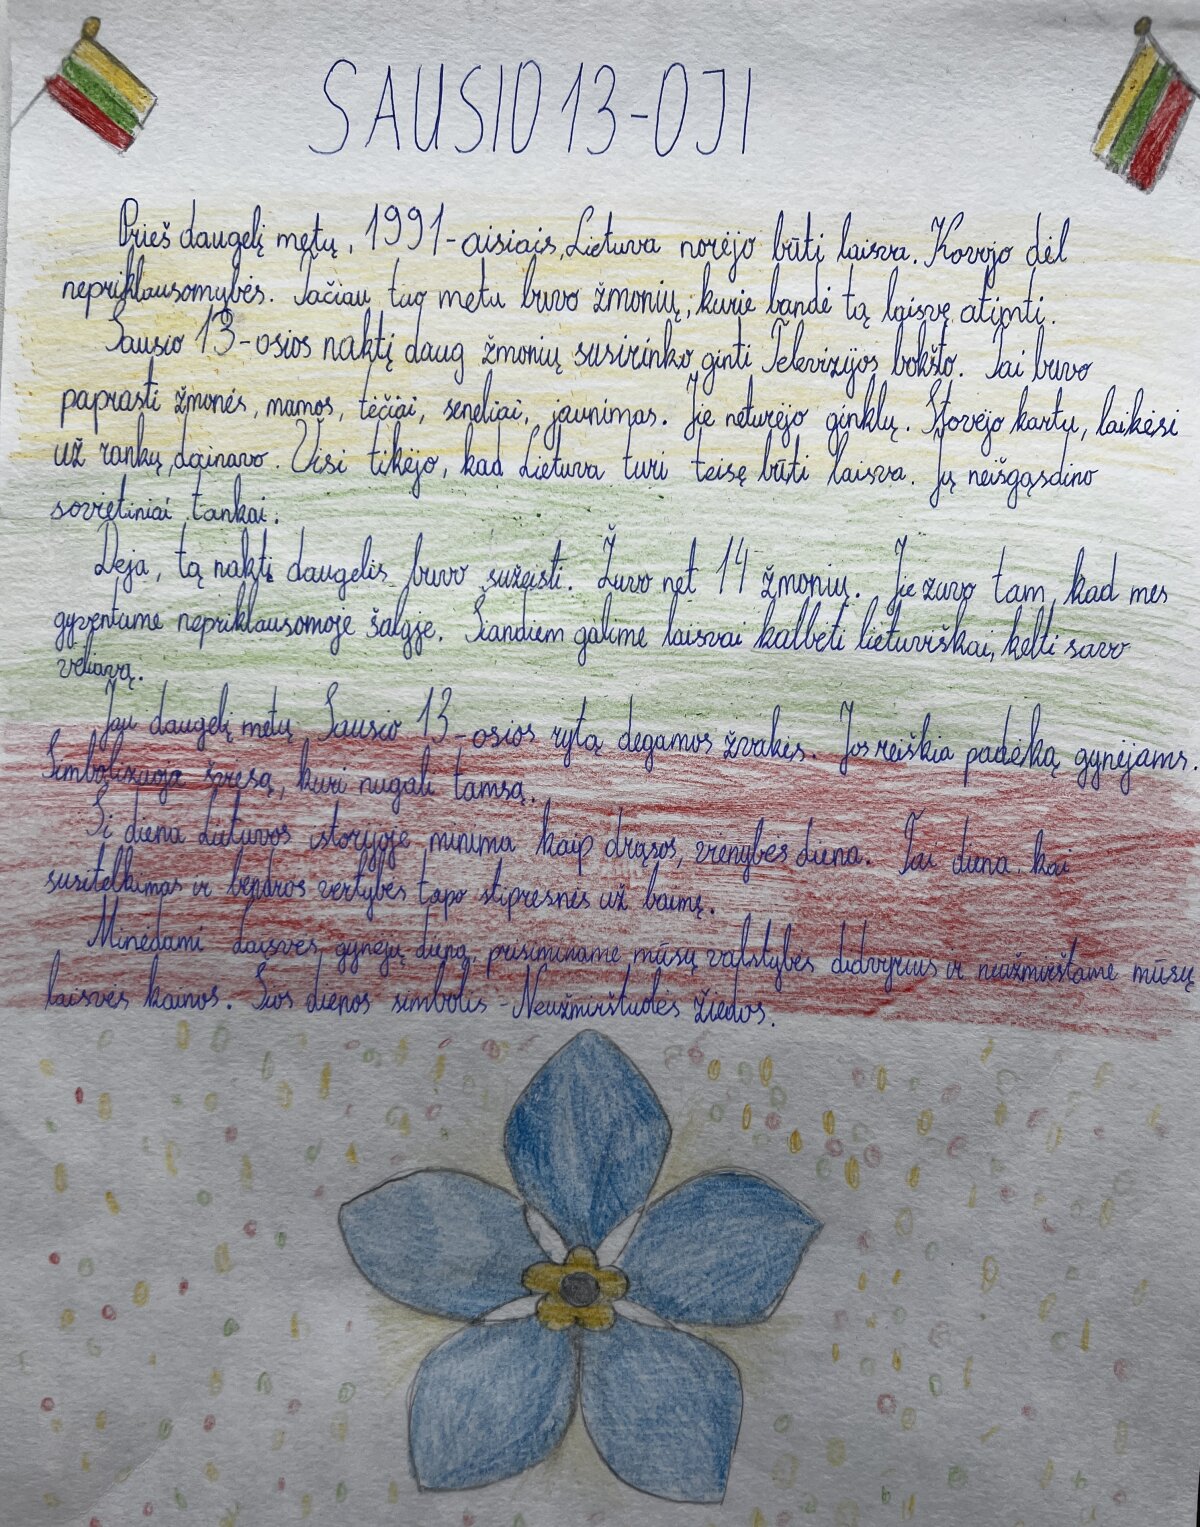 SAUSIO 13-OJI
Prieš daugelį metų, 1991-aisiais, Lietuva norėjo būti laisva. Kovojo dėl
nepriklausomybės. Tačiau tuo metu buvo žmonių, kurie bandė tą laisvę atimti.
Sausio 13-osios naktį daug žmonių susirinko ginti Televizijos bokšto. Tai buvo
paprasti žmonės, mamos, tėčiai, seneliai, jaunimas. Jie neturėjo ginklų. Stovėjo kartu, laikėsi
už rankų, dainavo. Visi tikėjo, kad Lietuva turi teisę būti laisva. Jų neišgąsdino
sovietiniai tankai.
Deja, tą naktį daugelis buvo sužeisti. Žuvo net 14 žmonių. Jie žuvo tam, kad mes
gyventume nepriklausomoje šalyje. Šiandien galime laisvai kalbėti lietuviškai, kelti savo
vėliavą.
Jau daugelį metų Sausio 13-osios rytą degamos žvakės. Jos reiškia padėką gynėjams.
Simbolizuoja šviesą, kuri nugali tamsą.
Ši diena Lietuvos istorijoje minima kaip drąsos, vienybės diena. Tai diena kai
susitelkimas ir bendros vertybės tapo stipresnės už baimę.
Minėdami Laisvės gynėjų dieną, prisiminame mūsų valstybės didvyrius ir neužmirštame mūsų
laisvės kainos. Šios dienos simbolis - Neužmirštuolės žiedas.